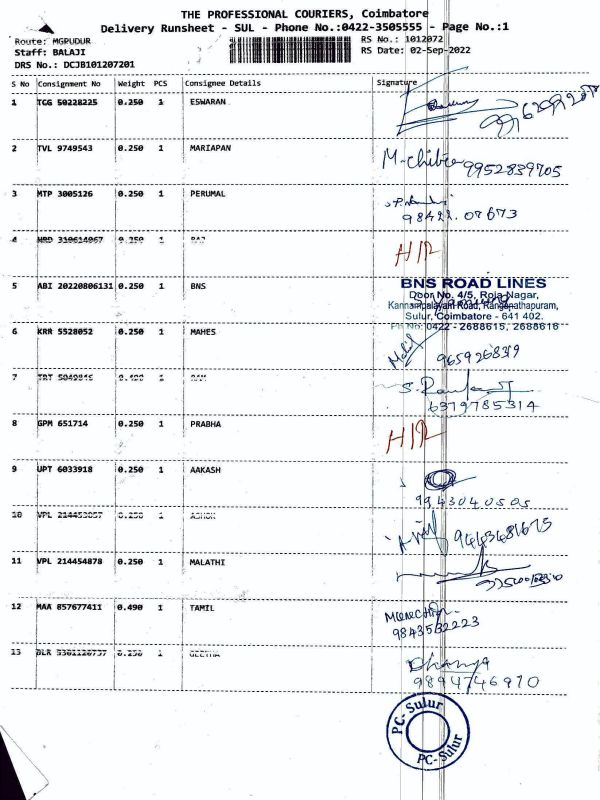 THE PROFESSIONAL COURIERS, Coimbatore
Delivery Runsheet - SUL - Phone No.:0422-3505555 - Page No.:1
Route: MGPUDUR
RS No.: 1012072
Staff: BALAJI
RS Date: 02-Sep-2022
DRS No.: DCJB101207201
S No Consignment No Weight PCS Consignee Details Signature
1 TCG 50228225 0.250 1 ESWARAN
2 TVL 9749543 0.250 1 MARIAPAN M-chibra 9952839705
3 MTP 3005126 0.250 1 PERUMAL
98422.07673
4 NRD 310614967 0.250 1 RAJ H/R
5 ABI 20220806131 0.250 1 BNS
BNS ROAD LINES
Door No. 4/5, Roja Nagar,
Kannampalayam Road, Ranganathapuram,
Sulur, Coimbatore - 641 402.
Ph No: 0422 - 2688615, 2688616
6 KRR 5528052 0.250 1 MAHES
7 TRT 1 RAM
6379785314
8 GPM 651714 0.250 1 PRABHA H/R
9 UPT 6033918 0.250 1 AAKASH
9943040505
10 VPL 214453057 0.250 1 ASHOK
11 VPL 214454878 0.250 1 MALATHI
12 MAA 857677411 0.490 1 TAMIL
9843532223
13 BLR 0.250 1 GEETHA Dhanya
9894746970
PC- Sulur
PC- Sulur